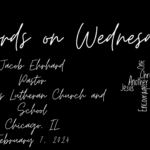 ords on Wednesda
Jacob Ehrhard
Pastor
s Lutheran Church and
School
Chicago, IL
February 1, 2024
One
Another
Jesus
Encourage